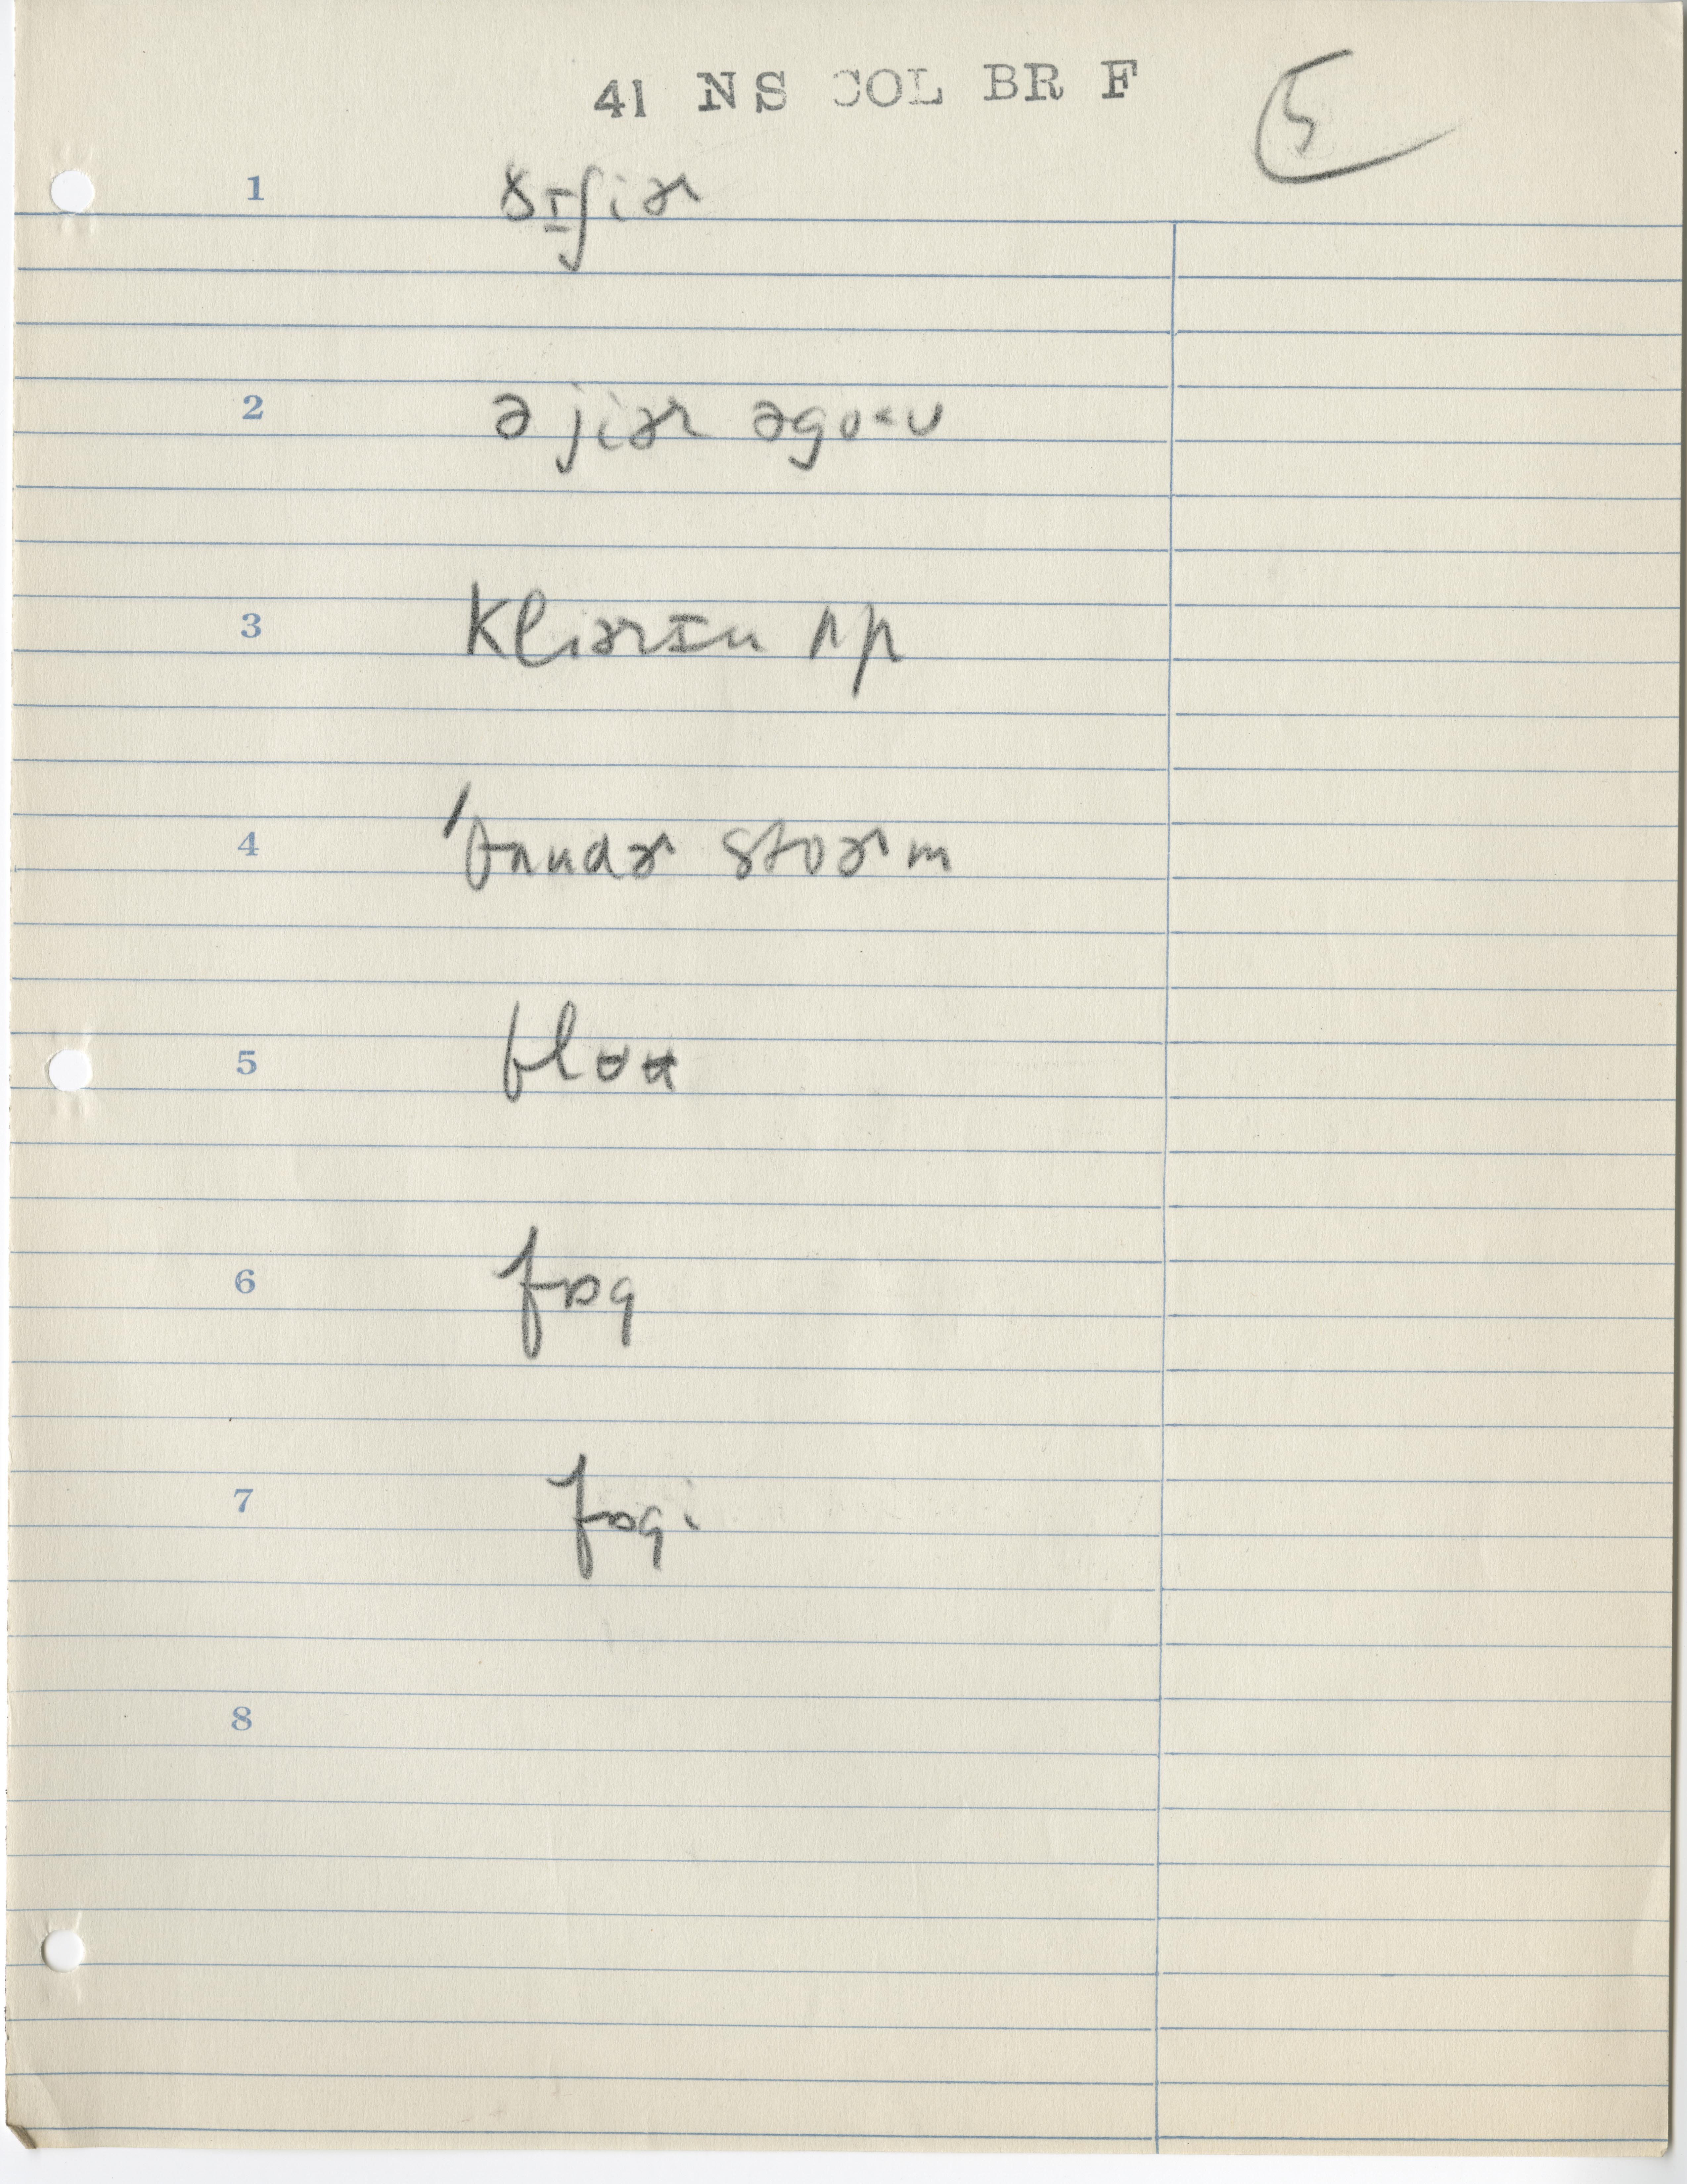 41 NS COL BR F
5
1 ðɪʃiɚ
2 ə jiɚ əgo<u
3 kliɚɪn ʌp
4 ˈθʌndɚ stoɚm
5
6 fɒg
7 fɒgi
8